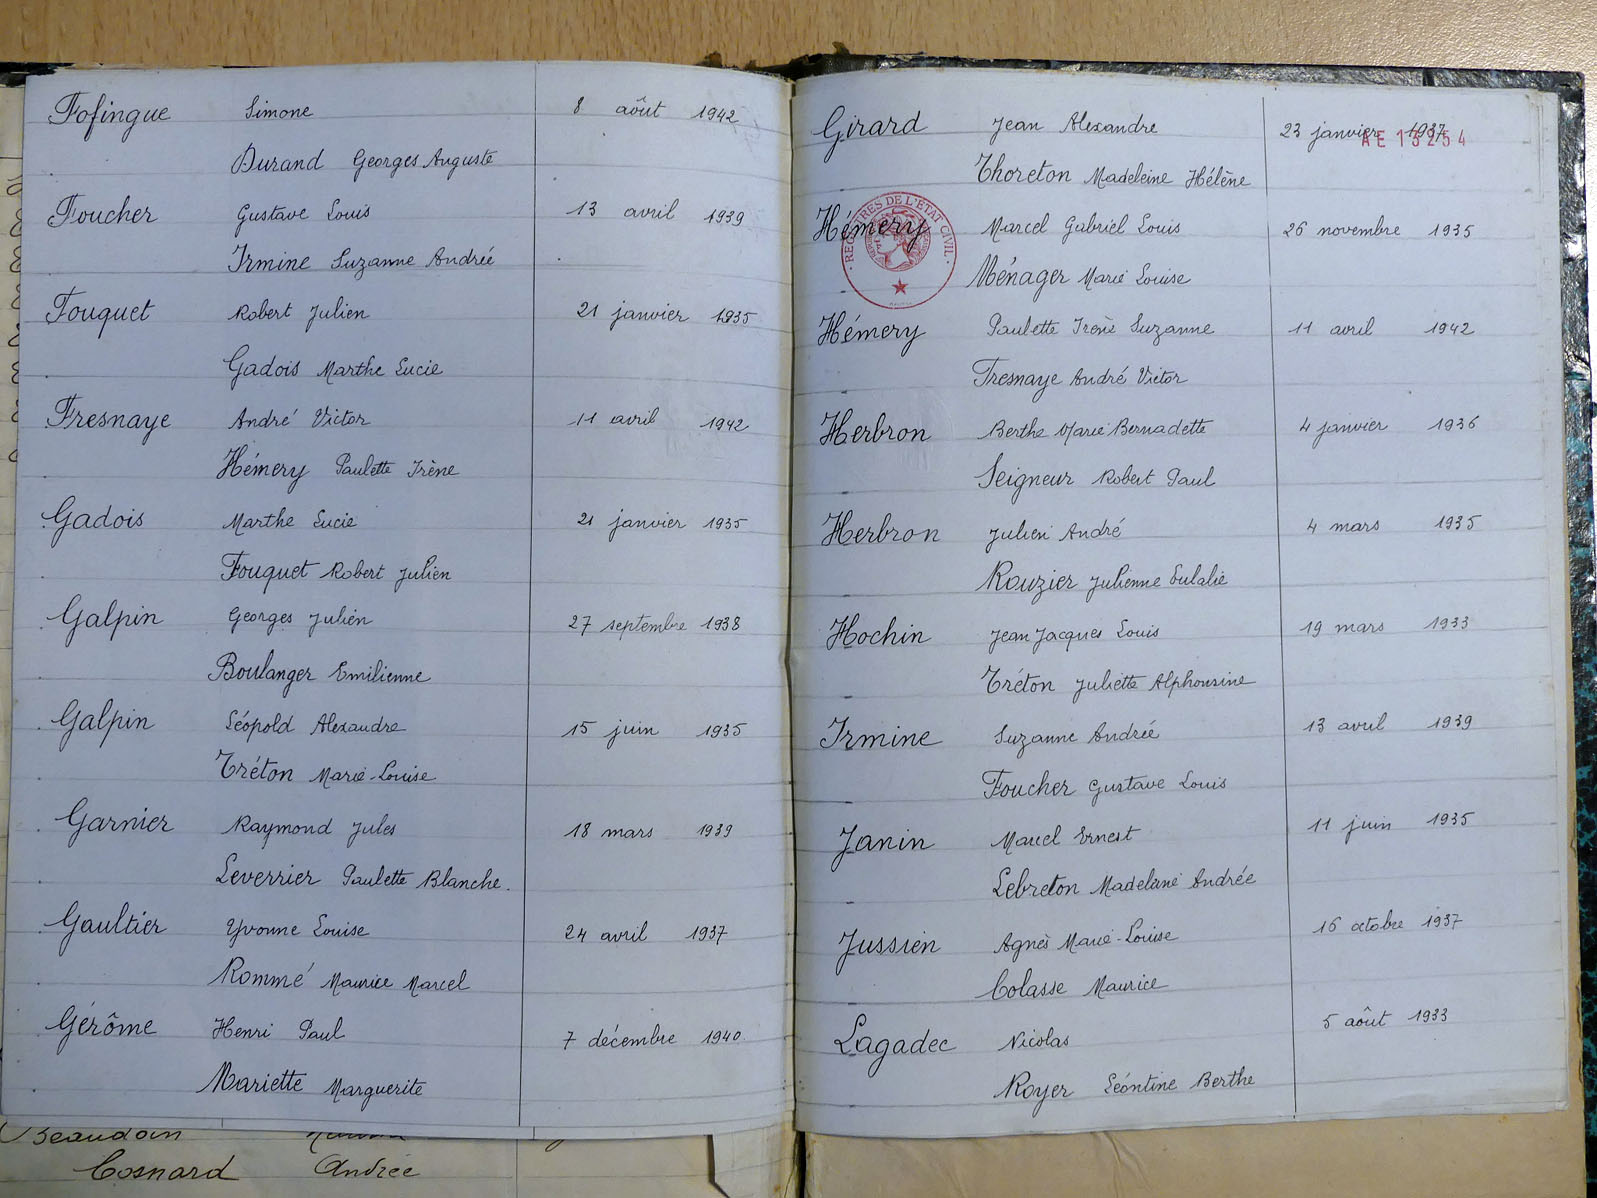 Fofingue Simone 8 août 1942
Durand Georges Auguste
Foucher Gustave Louis 13 avril 1939
Irmine Suzanne Andrée
Fouquet Robert Julien 21 janvier 1935
Gadois Marthe Lucie
Fresnaye André Victor 11 avril 1942
Hémery Paulette Irène
Gadois Marthe Lucie 21 janvier 1935
Fouquet Robert Julien
Galpin Georges Julien 27 septembre 1938
Boulanger Emilienne
Galpin Léopold Alexandre 15 juin 1935
Tréton Marie-Louise
Garnier Raymond Jules 18 mars 1939
Leverrier Paulette Blanche.
Gaultier Yvonne Louise 24 avril 1937
Rommé Maurice Marcel
Gérôme Henri Paul 7 décembre 1940.
Mariette Marguerite
Beaudoin
Cosnard Andrée
Girard Jean Alexandre 23 janvier 1937
AE 13254
Thoreton Madeleine Hélène
REGISTRES DE L'ETAT CIVIL
Hémery Marcel Gabriel Louis 26 novembre 1935
Ménager Marie Louise
Hémery Paulette Irène Suzanne 11 avril 1942
Fresnaye André Victor
Herbron Berthe Marie Bernadette 4 janvier 1936
Seigneur Robert Paul
Herbron Julien André 4 mars 1935
Rouzier Julienne Eulalie
Hochin Jean Jacques Louis 19 mars 1933
Tréton Juliette Alphonsine
Irmine Suzanne Andrée 13 avril 1939
Foucher Gustave Louis
Janin Marcel Ernest 11 juin 1935
Lebreton Madeleine Andrée
Jussien Agnès Marie-Louise 16 octobre 1937
Colasse Maurice
Lagadec Nicolas 5 août 1933
Royer Léontine Berthe